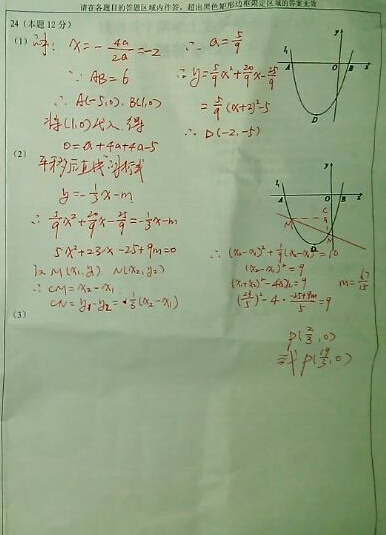 请在各题目的答题区域内作答，超出黑色矩形边框限定区域的答案无效
24（本题12分）
(1) 解: x=-4a/2a=-2
∵ AB=6
∴ A(-5,0), B(1,0)
将(1,0)代入, 得
0=a+4a+4a-5
∴ a=5/9
∴ y=5/9x²+20/9x-25/9
=5/9(x+2)²-5
∴ D(-2,-5)
y
A
O
B
x
D
(2)
平移后直线的解析式
y=-1/3x-m
∴ 5/9x²+20/9x-25/9=-1/3x-m
5x²+23x-25+9m=0
设M(x₁,y₁) N(x₂,y₂)
∴ CM=x₂-x₁
CN=y₁-y₂=1/3(x₂-x₁)
y
A
O
B
x
C
M
N
D
∴ (x₂-x₁)²+1/9(x₂-x₁)²=10
(x₂-x₁)²=9
(x₁+x₂)²-4x₁x₂=9
(23/5)²-4·(-25+9m)/5=9
m=67/15
(3)
P(2/3,0)
或P(19/3,0)